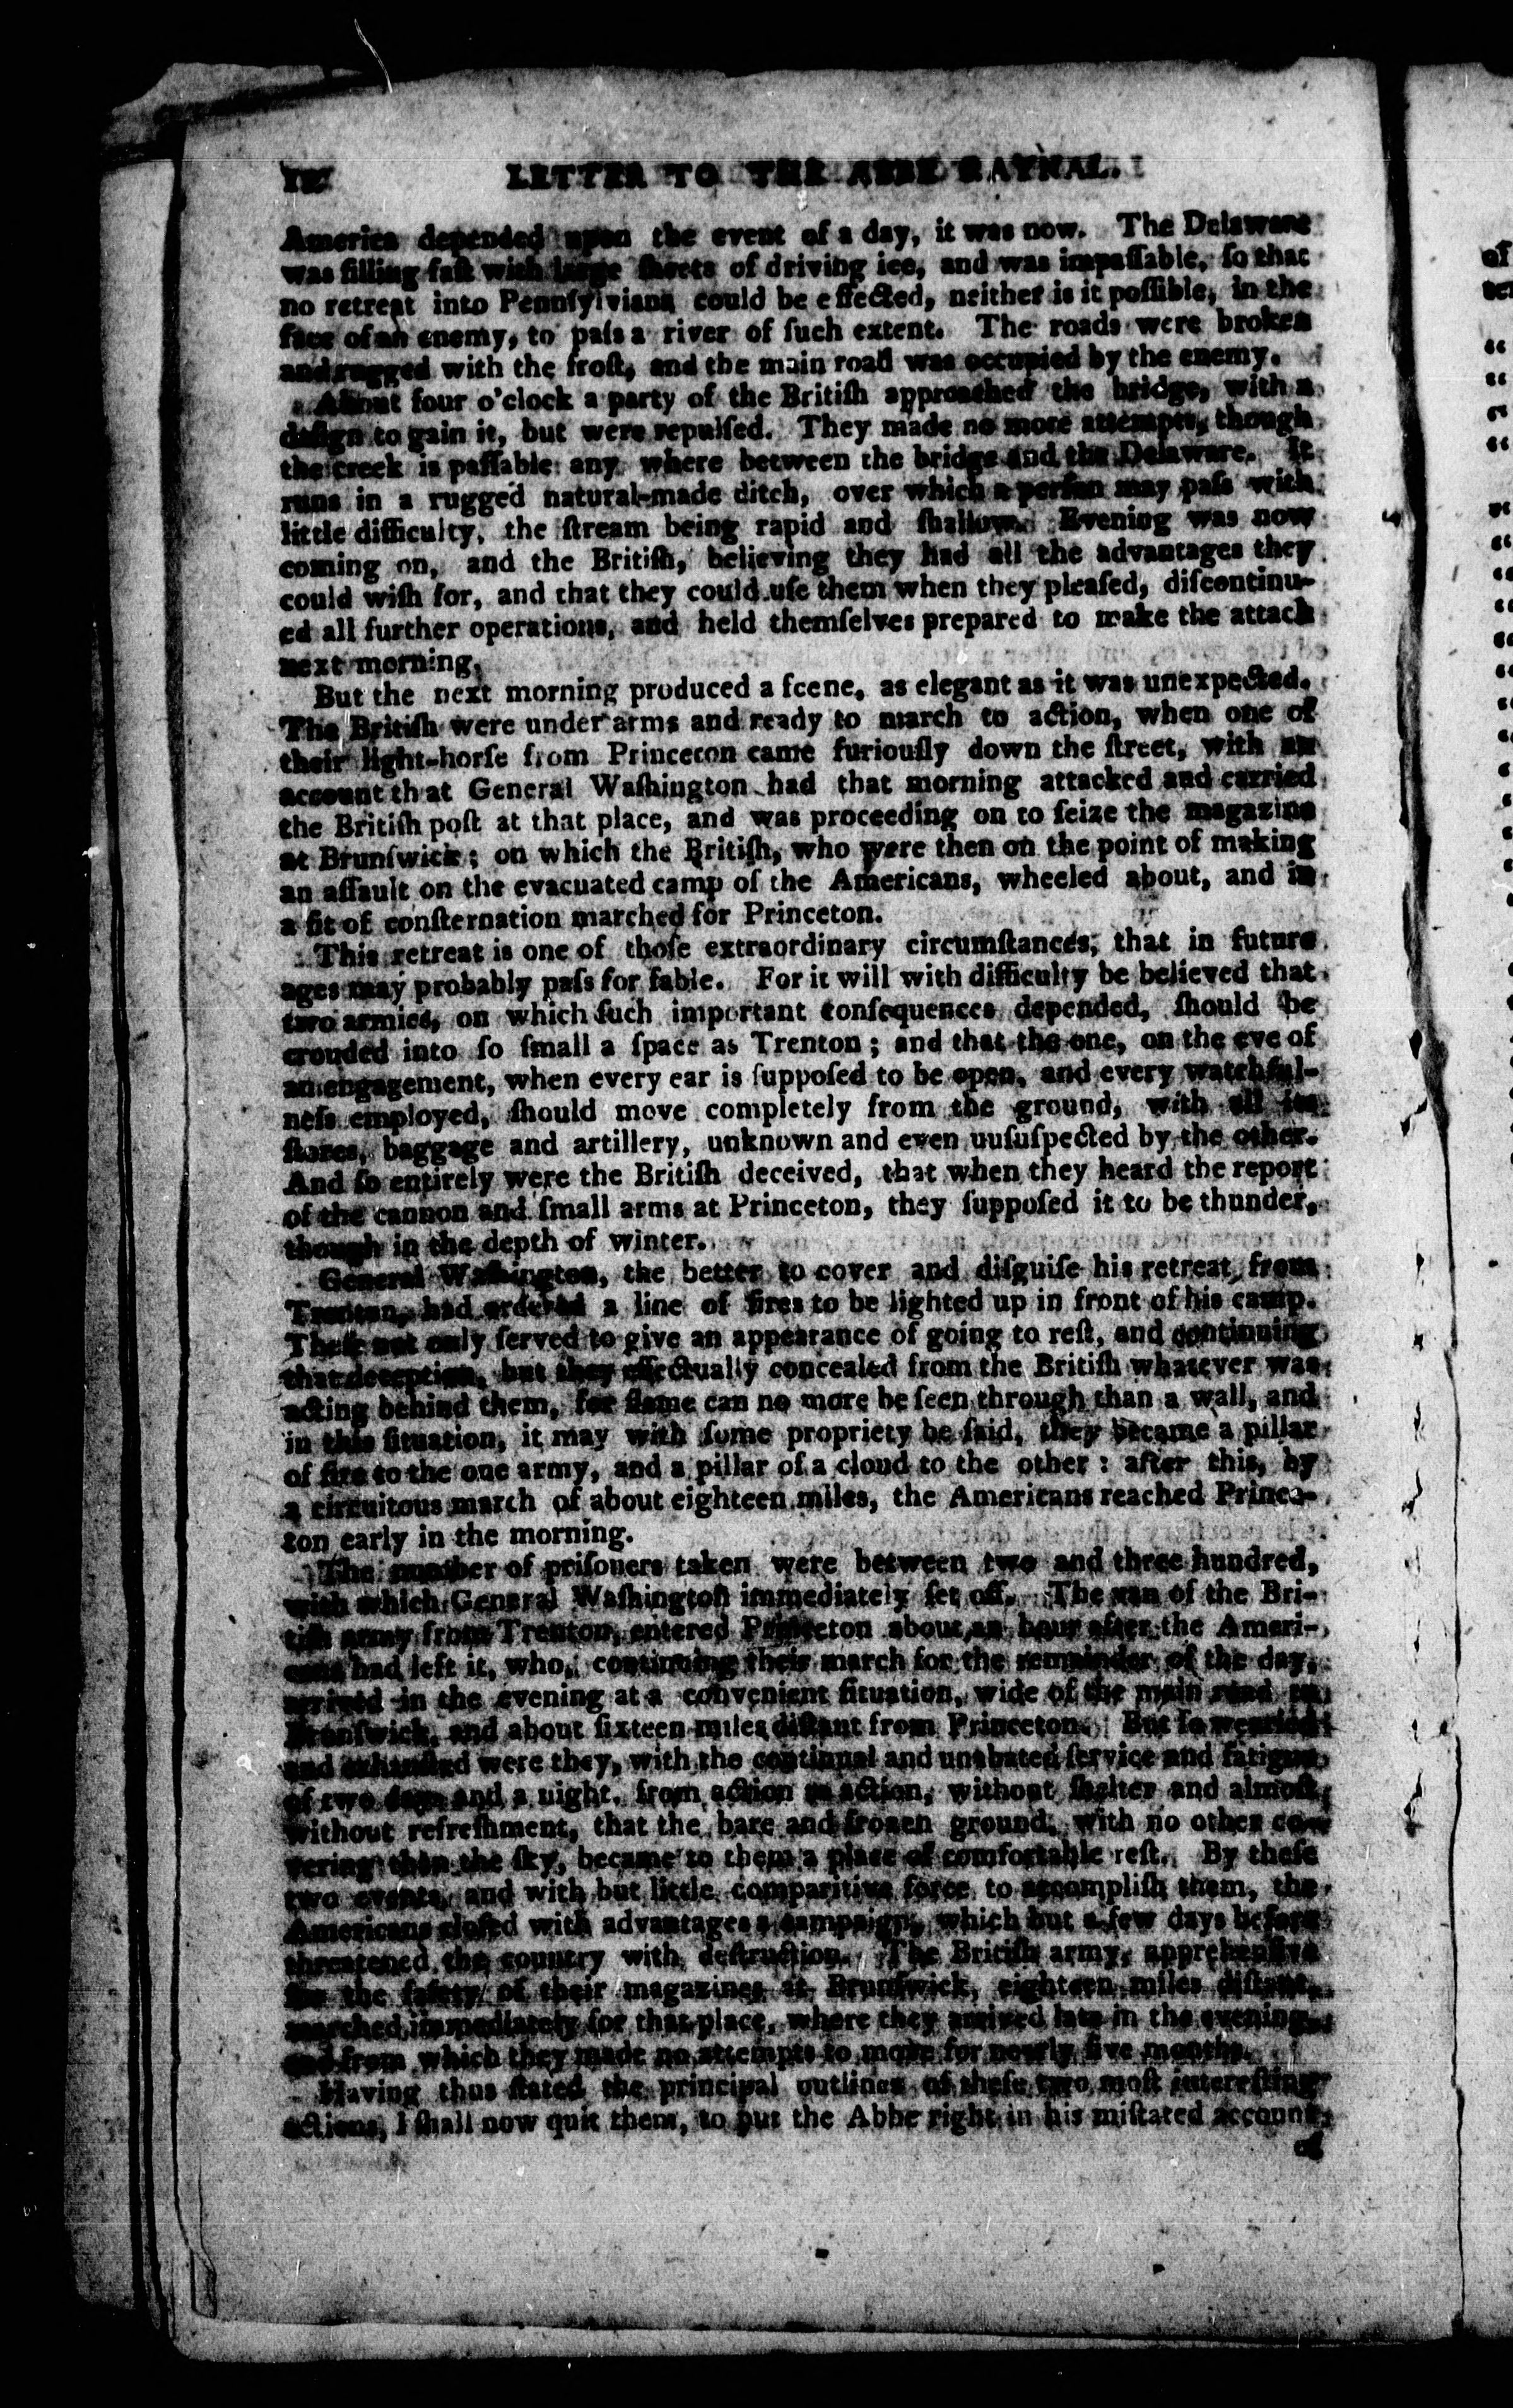 LETTER TO THE ABBE RAYNAL.
America depended upon the event of a day, it was now. The Delaware
was filling faſt with large ſheets of driving ice, and was impaſſable, ſo that
no retreat into Pennſylviana could be effected, neither is it poſſible, in the
face of an enemy, to paſs a river of ſuch extent. The roads were broken
and rugged with the froſt, and the main road was occupied by the enemy.
About four o'clock a party of the Britiſh approached the bridge, with a
deſign to gain it, but were repulſed. They made no more attempts, though
the creek is paſſable any where between the bridge and the Delaware. It
runs in a rugged natural-made ditch, over which a perſon may paſs with
little difficulty, the ſtream being rapid and ſhallow. Evening was now
coming on, and the Britiſh, believing they had all the advantages they
could wiſh for, and that they could uſe them when they pleaſed, diſcontinu-
ed all further operations, and held themſelves prepared to make the attack
next morning.
But the next morning produced a ſcene, as elegant as it was unexpected.
The Britiſh were under arms and ready to march to action, when one of
their light-horſe from Princeton came furiouſly down the ſtreet, with an
account that General Waſhington had that morning attacked and carried
the Britiſh poſt at that place, and was proceeding on to ſeize the magazine
at Brunſwick; on which the Britiſh, who were then on the point of making
an aſſault on the evacuated camp of the Americans, wheeled about, and in
a fit of conſternation marched for Princeton.
This retreat is one of thoſe extraordinary circumſtances, that in future
ages may probably paſs for fable. For it will with difficulty be believed that
two armies, on which ſuch important conſequences depended, ſhould be
crouded into ſo ſmall a ſpace as Trenton; and that the one, on the eve of
an engagement, when every ear is ſuppoſed to be open, and every watchful-
neſs employed, ſhould move completely from the ground, with all its
ſtores, baggage and artillery, unknown and even uuſuſpected by the other.
And ſo entirely were the Britiſh deceived, that when they heard the report
of the cannon and ſmall arms at Princeton, they ſuppoſed it to be thunder,
though in the depth of winter.
General Waſhington, the better to cover and diſguiſe his retreat from
Trenton, had ordered a line of fires to be lighted up in front of his camp.
Theſe not only ſerved to give an appearance of going to reſt, and continuing
that deception, but they effectually concealed from the Britiſh whatever was
acting behind them, for flame can no more be ſeen through than a wall, and
in this ſituation, it may with ſome propriety be ſaid, they became a pillar
of fire to the one army, and a pillar of a cloud to the other: after this, by
a circuitous march of about eighteen miles, the Americans reached Prince-
ton early in the morning.
The number of priſoners taken were between two and three hundred,
with which General Waſhington immediately ſet off. The van of the Bri-
tiſh army from Trenton, entered Princeton about an hour after the Ameri-
cans had left it, who, continuing their march for the remainder of the day,
arrived in the evening at a convenient ſituation, wide of the main road to
Brunſwick, and about ſixteen miles diſtant from Princeton. But ſo wearied
and exhauſted were they, with the continual and unabated ſervice and fatigue
of two days and a night, from action to action, without ſhelter and almoſt
without refreſhment, that the bare and frozen ground, with no other co-
vering than the ſky, became to them a place of comfortable reſt. By theſe
two events, and with but little comparitive force to accompliſh them, the
Americans cloſed with advantages a campaign, which but a few days before
threatened the country with deſtruction. The Britiſh army, apprehenſive
for the ſafety of their magazines at Brunſwick, eighteen miles diſtant,
marched immediately for that place, where they arrived late in the evening,
and from which they made no attempts to move for nearly five months.
Having thus ſtated the principal outlines of theſe two moſt intereſting
actions, I ſhall now quit them, to put the Abbe right in his miſtated account
of